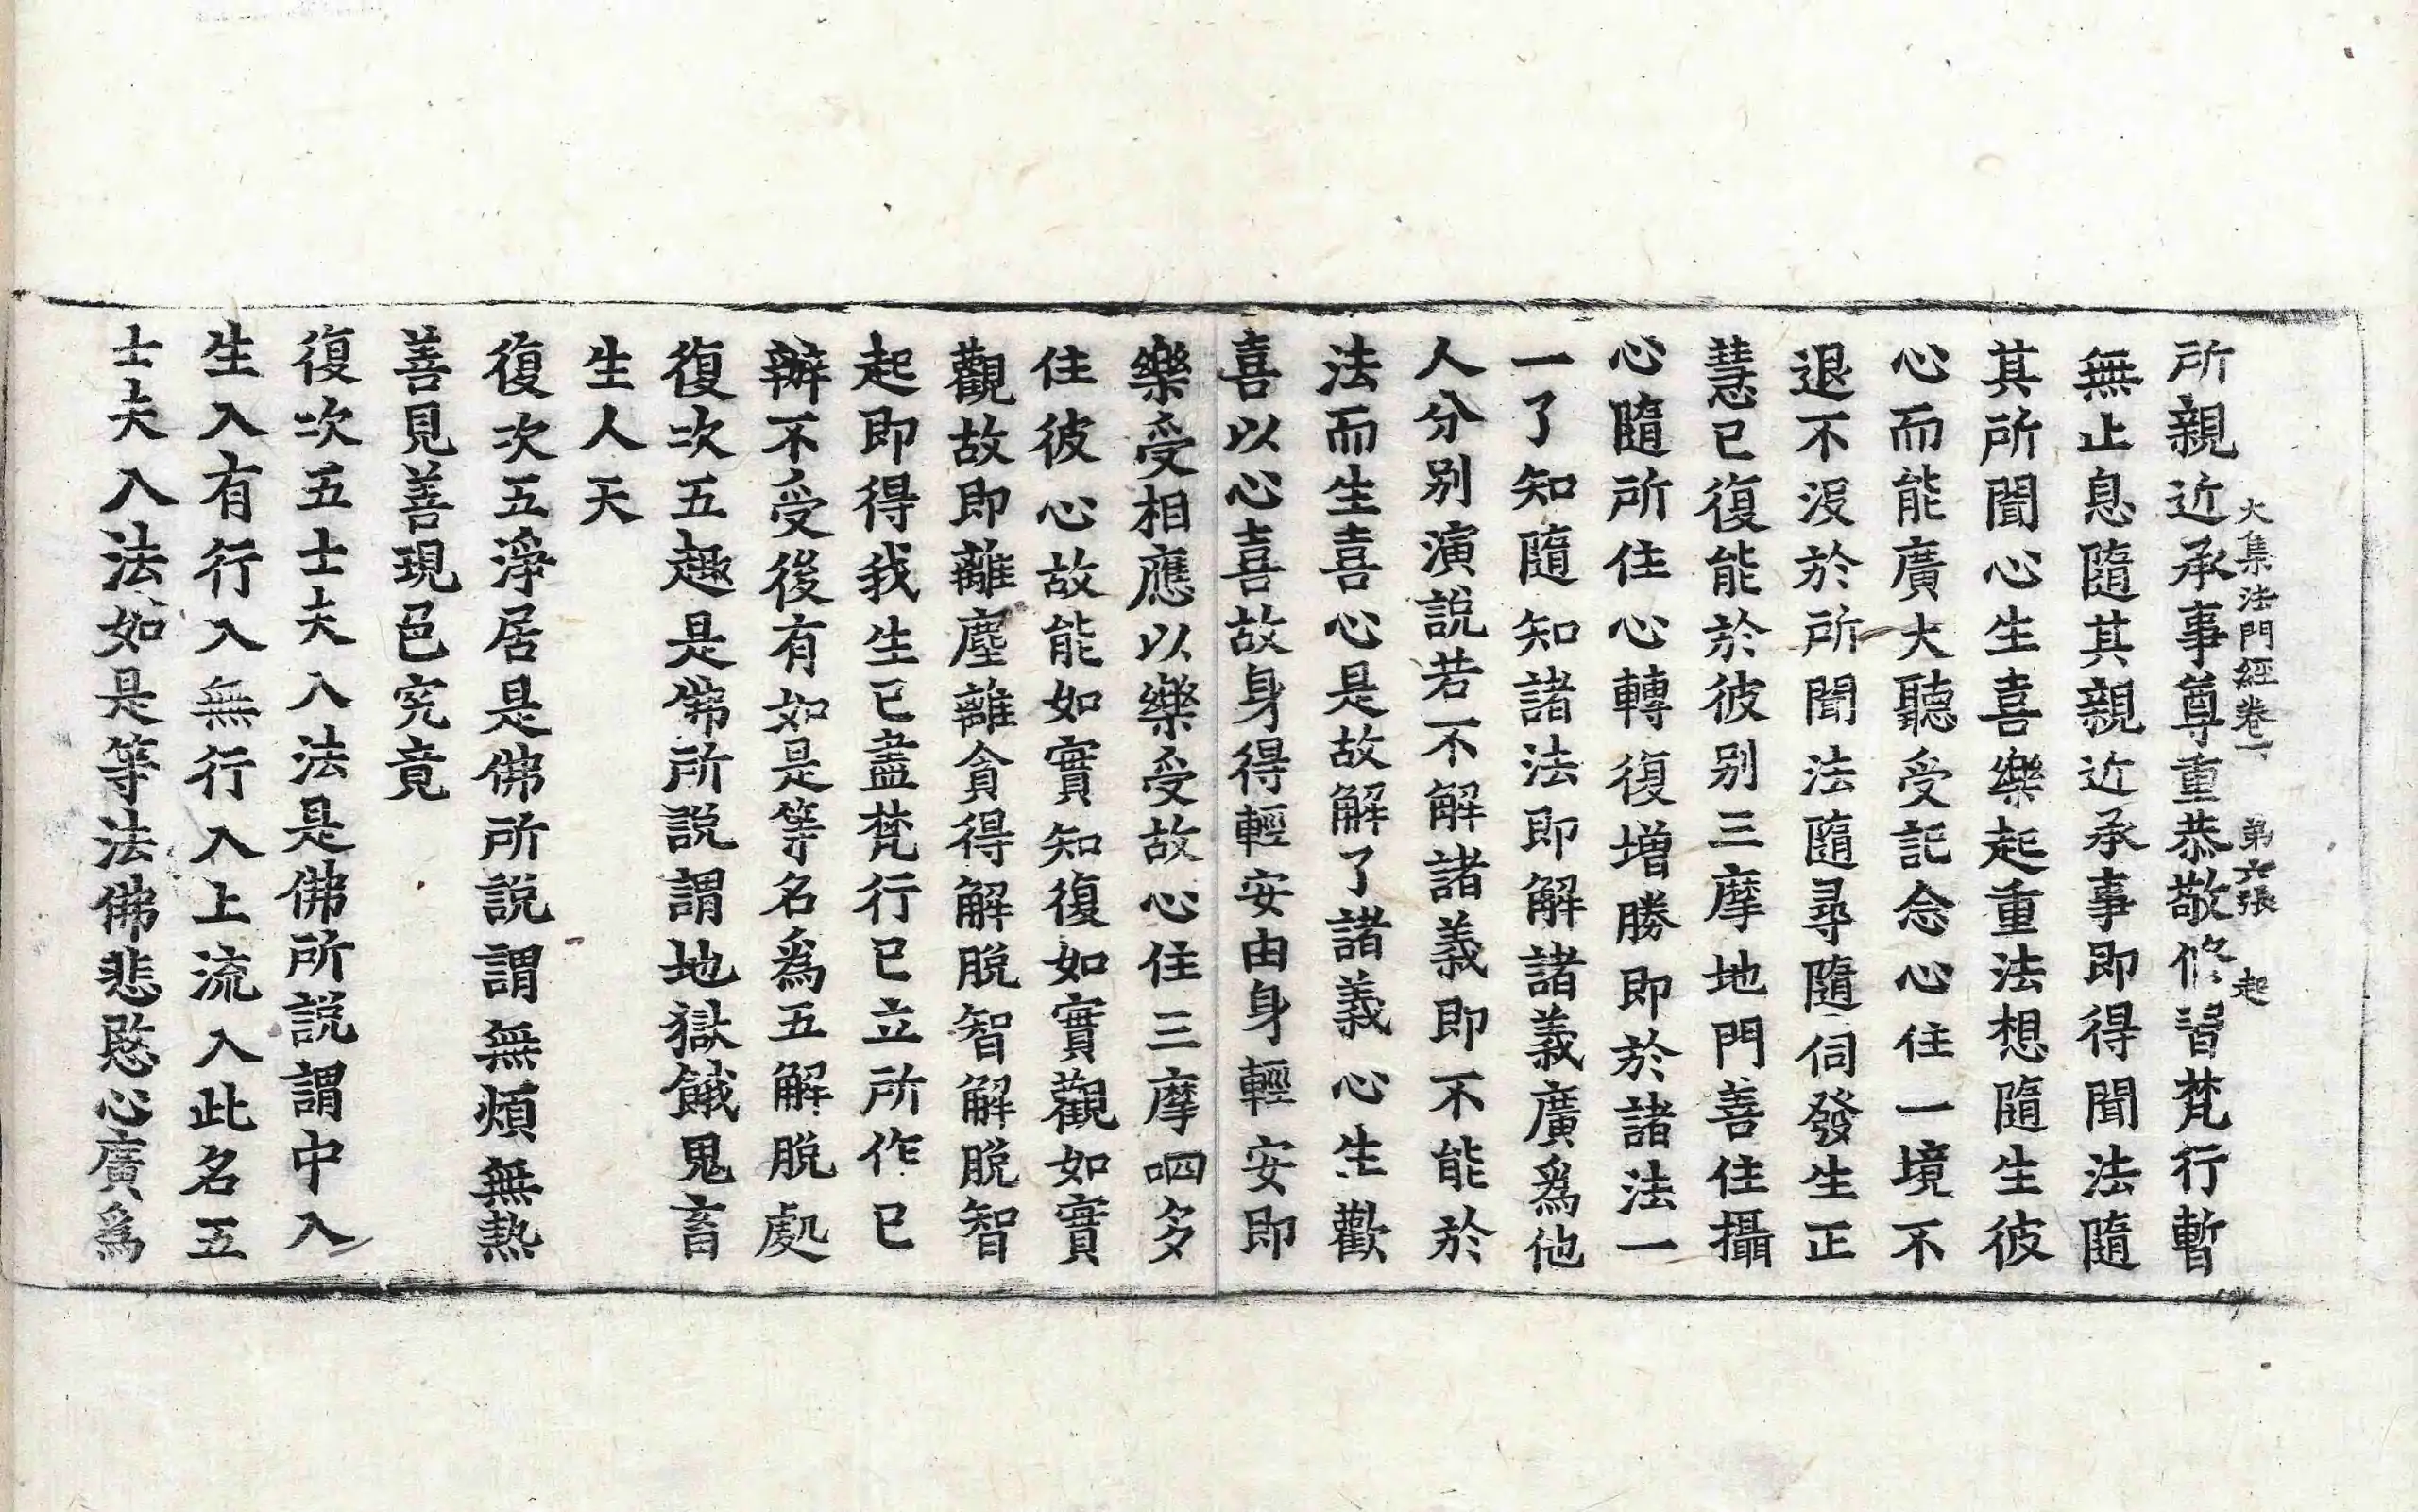 所親近承事尊重恭敬修習梵行暫
大集法門經卷下　第六張　起
無止息隨其親近承事即得聞法隨
其所聞心生喜樂起重法想隨生彼
心而能廣大聽受記念心住一境不
退不沒於所聞法隨尋隨伺發生正
慧已復能於彼別三摩地門善住攝
心隨所住心轉復增勝即於諸法一
一了知隨知諸法即解諸義廣爲他
人分別演說若不解諸義即不能於
法而生喜心是故解了諸義心生歡
喜以心喜故身得輕安由身輕安即
樂受相應以樂受故心住三摩呬多
住彼心故能如實知復如實觀如實
觀故即離塵離貪得解脫智解脫智
起即得我生已盡梵行已立所作已
辦不受後有如是等名爲五解脫處
復次五趣是佛所說謂地獄餓鬼畜
生人天
復次五淨居是佛所說謂無煩無熱
善見善現色究竟
復次五士夫入法是佛所說謂中入
生入有行入無行入上流入此名五
士夫入法如是等法佛悲愍心廣爲